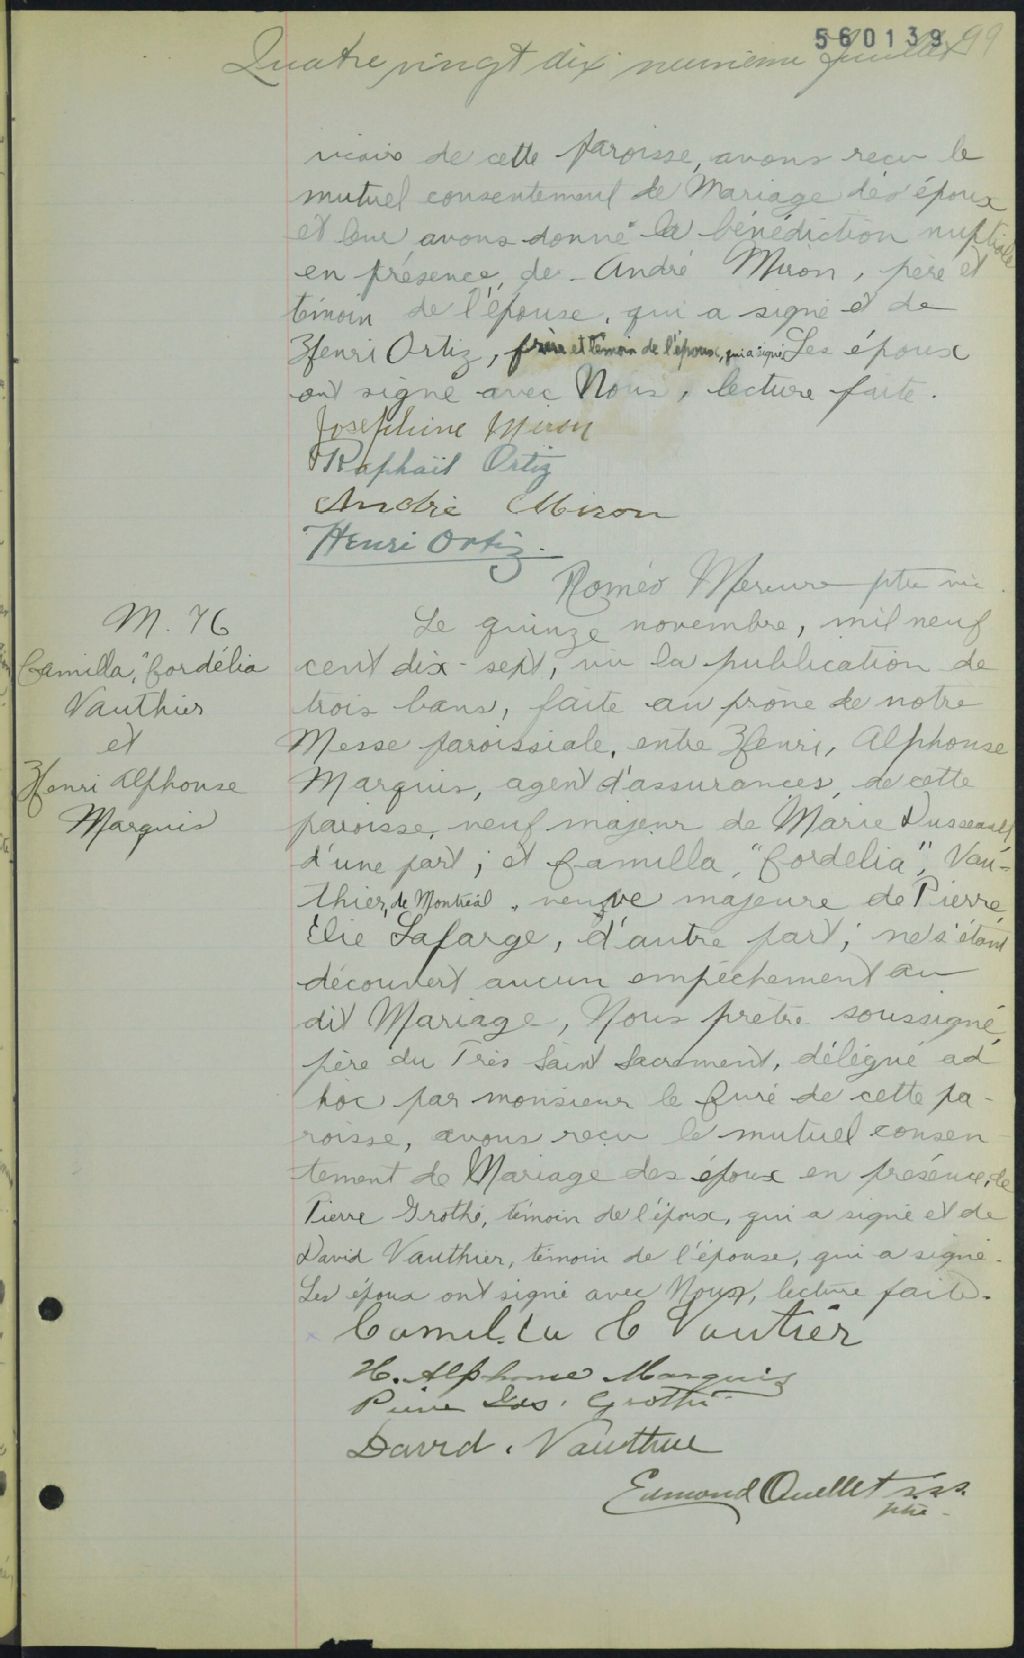 560139
Quatre vingt dix neuvième feuillet 99
vicaire de cette paroisse, avons reçu le
mutuel consentement de Mariage des époux
et leur avons donné la bénédiction nuptiale
en présence, de André Miron, père et
témoin de l'épouse, qui a signé et de
Henri Ortiz, frère et témoin de l'époux, qui a signé Les époux
ont signé avec Nous, lecture faite.
Josephine Miron
Raphaël Ortiz
André Miron
Henri Ortiz.
Roméo Mercure ptre vic.
M. 76
Camilla, "Cordélia
Vauthier
et
Henri Alphonse
Marquis
Le quinze novembre, mil neuf
cent dix-sept, vu la publication de
trois bans, faite au prône de notre
Messe paroissiale, entre Henri, Alphonse
Marquis, agent d'assurances, de cette
paroisse, veuf majeur de Marie
d'une part; et Camilla, "Cordelia", Vau-
thier, de Montréal, veuve majeure de Pierre
Élie Lafarge, d'autre part; ne s'étant
découvert aucun empêchement au
dit Mariage, Nous prêtre soussigné,
père du Très Saint Sacrement, délégué ad
hoc par monsieur le Curé de cette pa-
roisse, avons reçu le mutuel consen-
tement de Mariage des époux en présence, de
Pierre Grothé, témoin de l'époux, qui a signé et de
David Vauthier, témoin de l'épouse, qui a signé.
Les époux ont signé avec Nous, lecture faite.
Camilla C Vautier
H. Alphonse Marquis
Pierre Grothé
David. Vauthier
Edmond Ouellet s.s.s.
ptre.